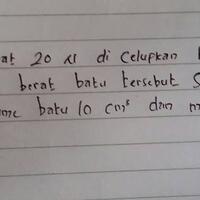 at 20 N di celupkan
berat batu tersebut S
me batu 10 cm³ dan m